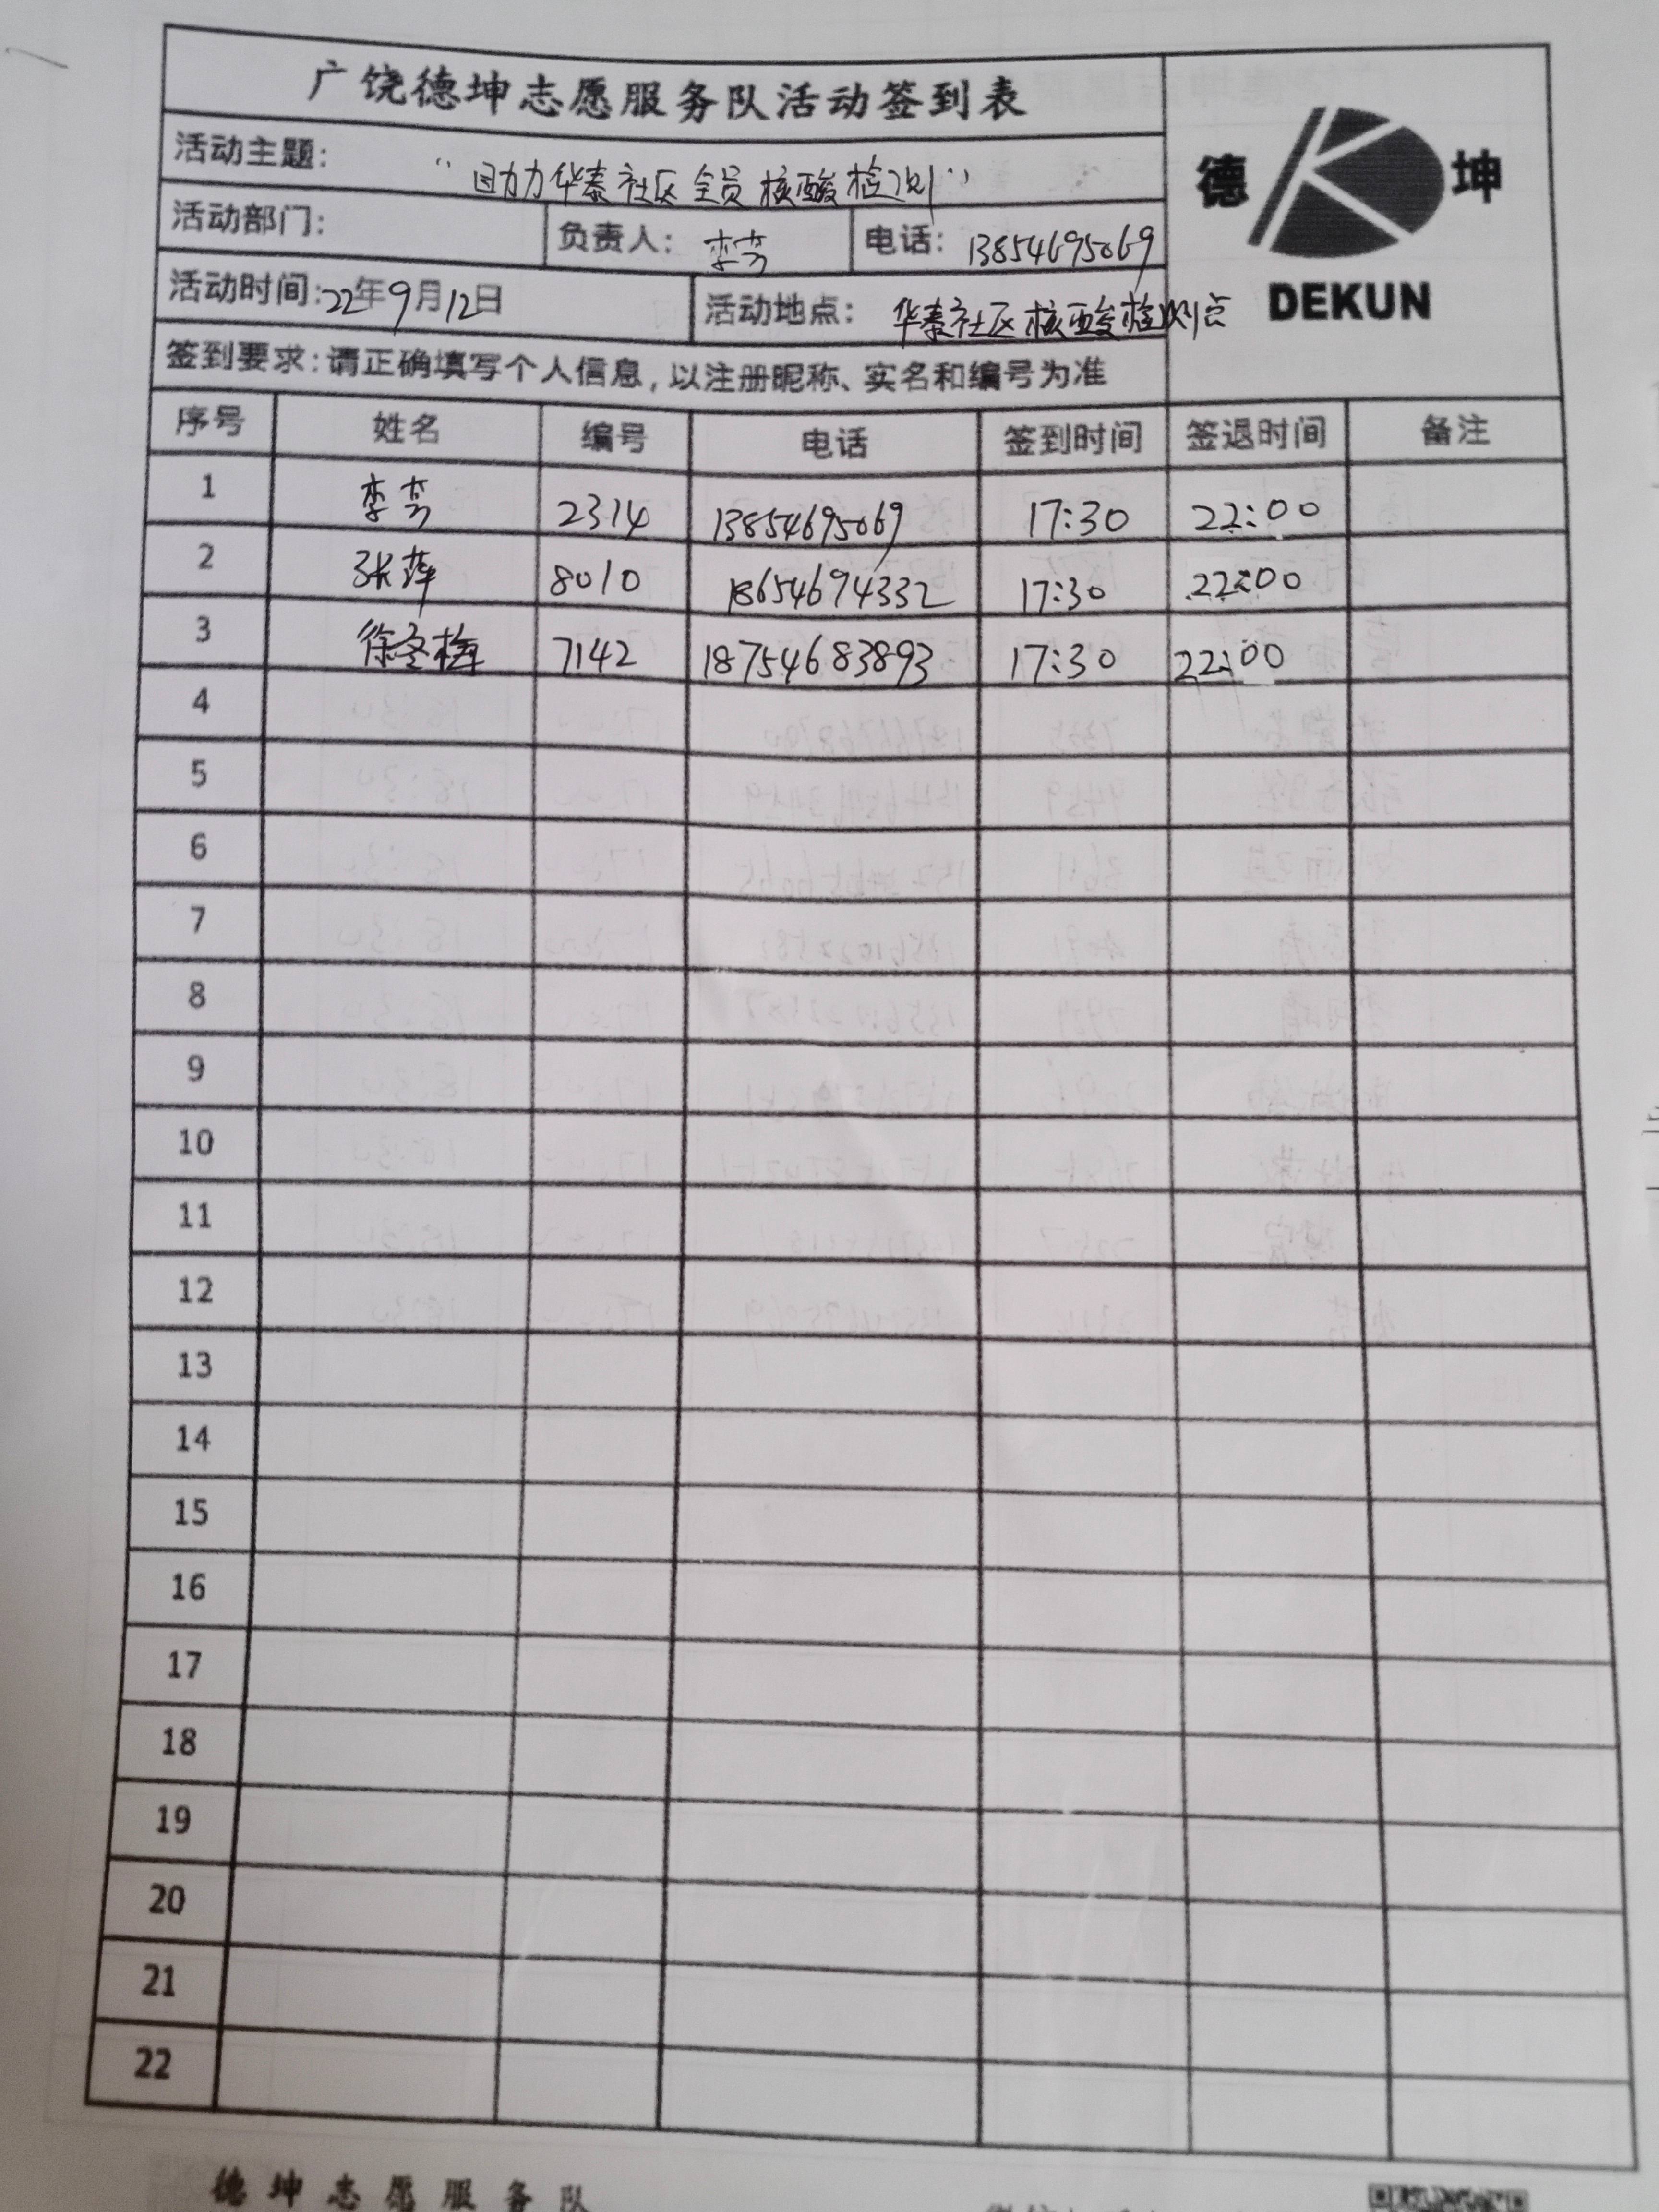 广饶德坤志愿服务队活动签到表
活动主题: "助力华泰社区全员核酸检测"
德 坤
活动部门: 负责人: 李芳 电话: 13854695069
DEKUN
活动时间:22年9月12日 活动地点: 华泰社区核酸检测点
签到要求:请正确填写个人信息,以注册昵称、实名和编号为准
序号 姓名 编号 电话 签到时间 签退时间 备注
1 李芳 2314 13854695069 17:30 22:00
2 张萍 8010 18654694332 17:30 22:00
3 徐冬梅 7142 18754683893 17:30 22:00
4
5
6
7
8
9
10
11
12
13
14
15
16
17
18
19
20
21
22
德坤志愿服务队